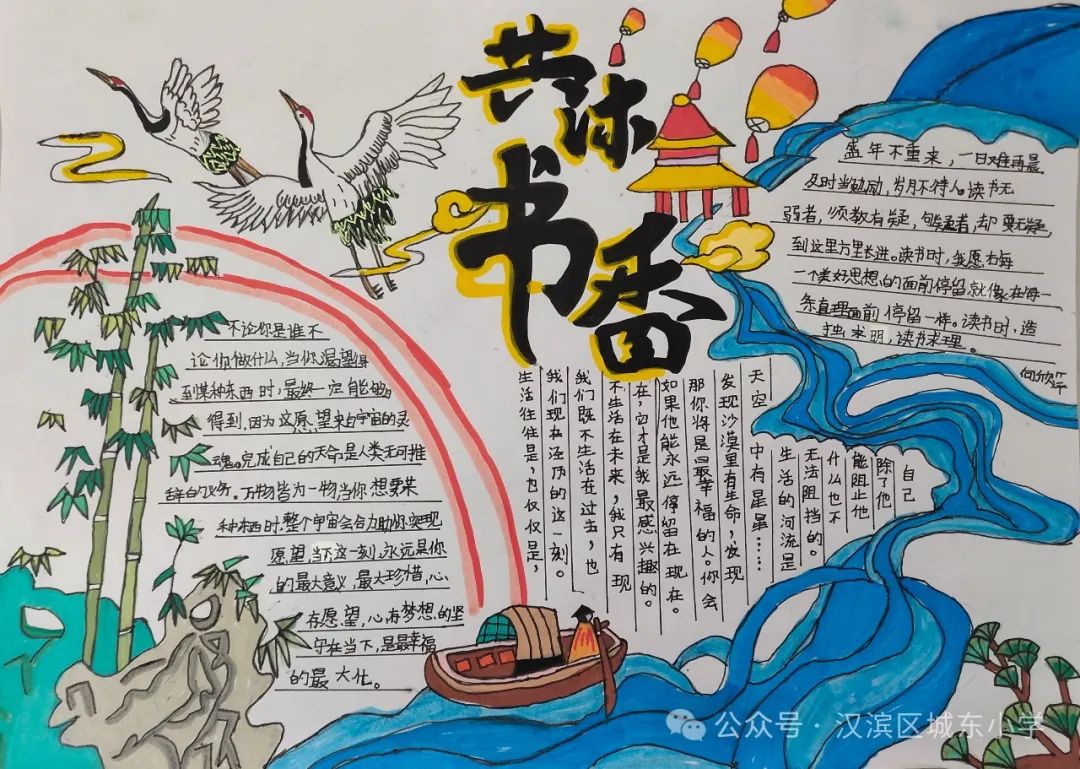 共沐
书香
不论你是谁不
论你做什么,当你渴望得
到某种东西时,最终一定能够
得到,因为这愿望来自宇宙的灵
魂。完成自己的天命是人类无可推
辞的义务。万物皆为一物当你想要某
种东西时,整个宇宙会合力助你实现
愿望,当下这一刻,永远是你
的最大意义,最大珍惜,心
存愿望,心有梦想,的坚
守在当下,是最幸福
的最大化。
盛年不重来,一日难再晨
及时当勉励,岁月不待人。读书无
疑者,须教有疑,有疑者,却要无疑,
到这里方是长进。读书时,我愿在每
一个美好思想的面前停留就像在每一
条真理面前停留一样。读书时,造
烛求明,读书求理。
何欣
自己
除了他
能阻止他
什么也不
无法阻挡的。
生活的河流是
天空中有星星……
发现沙漠里有生命,发现
那你将是最幸福的人。你会
如果他能永远停留在现在。
在,它才是我最感兴趣的。
不生活在未来,我只有现
我们既不生活在过去,也
我们现在经历的这一刻。
生活往往是,也仅仅是,
公众号·汉滨区城东小学